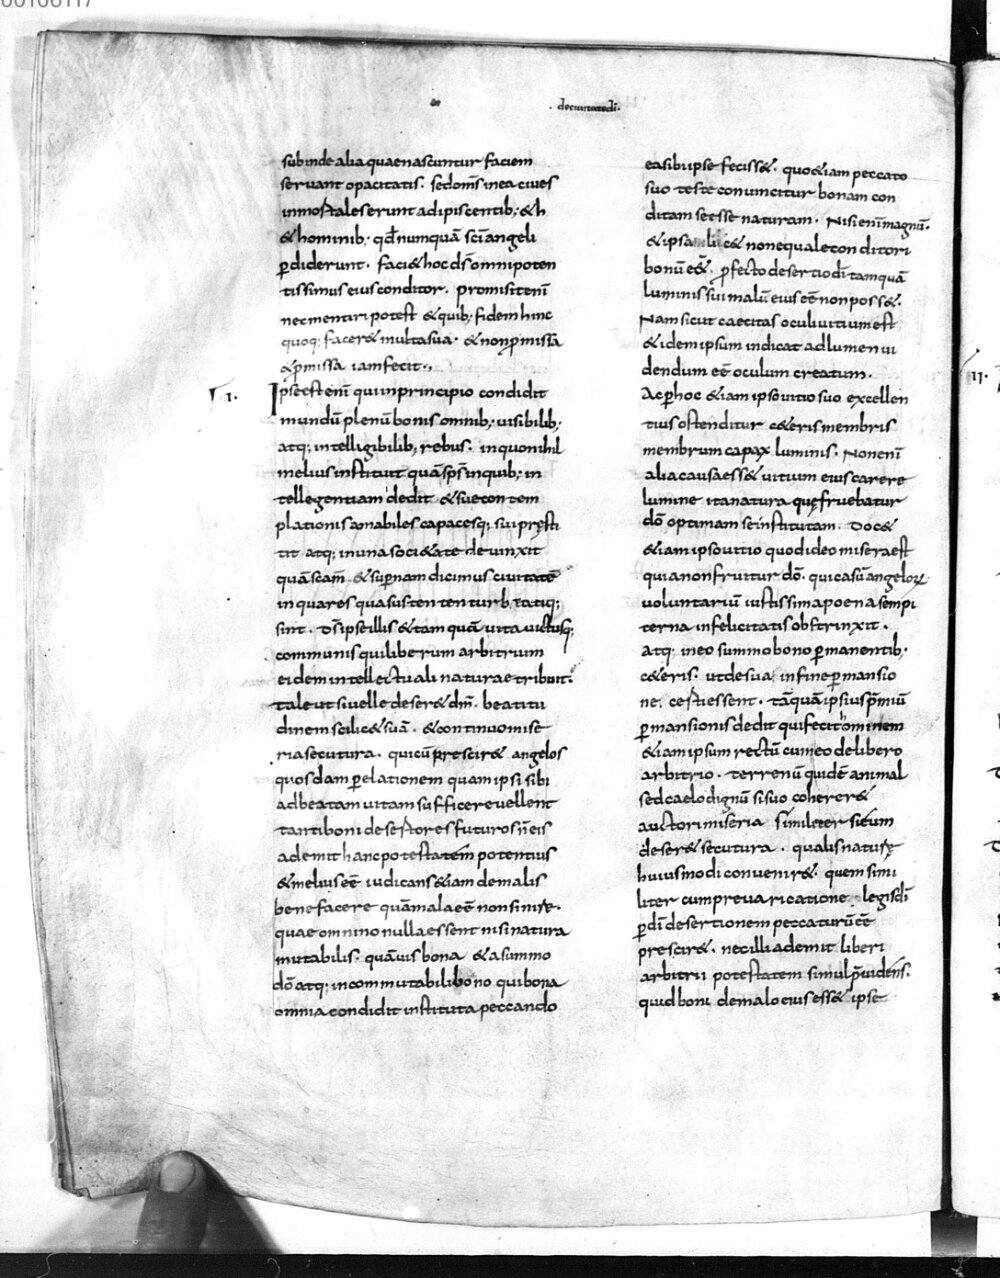 00106117
· deciuitatedi ·
subinde alia quaenascuntur faciem
seruant opacitatis. sedom̅s inea ciues
inmortaleserunt adipiscentib; & h
& hominib; qđ numquā sc̅i angeli
ꝑdiderunt. faci& hoc ds̅ omnipoten
tissimus eius conditor. promisit eni̅
necmentiri potest & quib; fidem hinc
quoq; facer& multasua. & nonp̅missa
& p̅missa iam fecit.,
I. Ipse est eni̅ qui inprincipio condidit
mundū plenū bonis omnib; uisibilib;
atq; intelligibilib; rebus. inquo nihil
melius instituit quā sp̅s inquib; in
tellegentiam dedit & suecontem
plationis abiles capacesq; sui pręsti
tit atq; inuna soci&ate deuinxit
quā sc̅am & supernam dicimus ciuitatē
inqua res qua sustententur b; tatiq;
sint. ds̅ ipse illis & tam quā uita uictusq;
communis qui liberum arbitrium
eidem intellectuali naturae tribuit.
tale ut siuelle deser& dm̅. beatitu
dinem scilic& suā. & continuo mise
ria secutura. qui cū prescir& angelos
quosdam ꝑ elationem quam ipsi sibi
adbeatam uitam sufficere uellent
tanti boni desertores futuros n̅ eis
ademit hanc potestatem potentius
& melius eē iudicans &iam demalis
bene facere quā mala eē non siniꝛe.
quae omnino nulla essent nisi natura
mutabilis. quāuis bona & a summo
dō atq; incommutabili bono qui bona
omnia condidit instituta peccando
ea sibi ipse feciss&. quo &iam peccato
suo teste conuincitur bonam con
ditam se esse naturam. Nisi eni̅ magnū.
& ipsa lic& non equale conditori
bonū e&. ꝓfecto desertio di̅ tamquā
luminis sui malū eius eē non poss&.
Nam sicut caecitas oculi uitium est
& idem ipsum indicat ad lumen ui
dendum eē oculum creatum.
Ac ꝑ hoc &iam ipso uitio suo excellen
tius ostenditur c&eris membris
membrum capax luminis. Non eni̅
alia causa ess& uitium eius carere
lumine ita natura quę fruebatur
dō optimam se institutam. Doc&
&iam ipso uitio quod ideo misera est
quia non fruitur dō. qui casū angeloꝝ
uoluntariū iustissima poena sempi
terna infelicitatis obstrinxit.
atq; ineo summo bono ꝑmanentib;
c&eris. ut desua infine ꝑmansio
ne. certi essent. tāquā ipsius p̅miū
ꝑmansionis dedit qui fecit ominem
&iam ipsum rectū cum eo delibero
arbitrio. terrenū quidē animal
sed caelo dignū si suo coherer&
auctori miseria similiter si eum
deser& secutura. qualis naturę
huiusmodi conuenir&. quem simi
liter cum preuaricatione legis di̅
ꝑ di̅ desertionem peccaturū eē
prescir&. nec illi ademit liberi
arbitrii potestatem simul p̅uidens.
quid boni demalo eius ess& ipse
II.